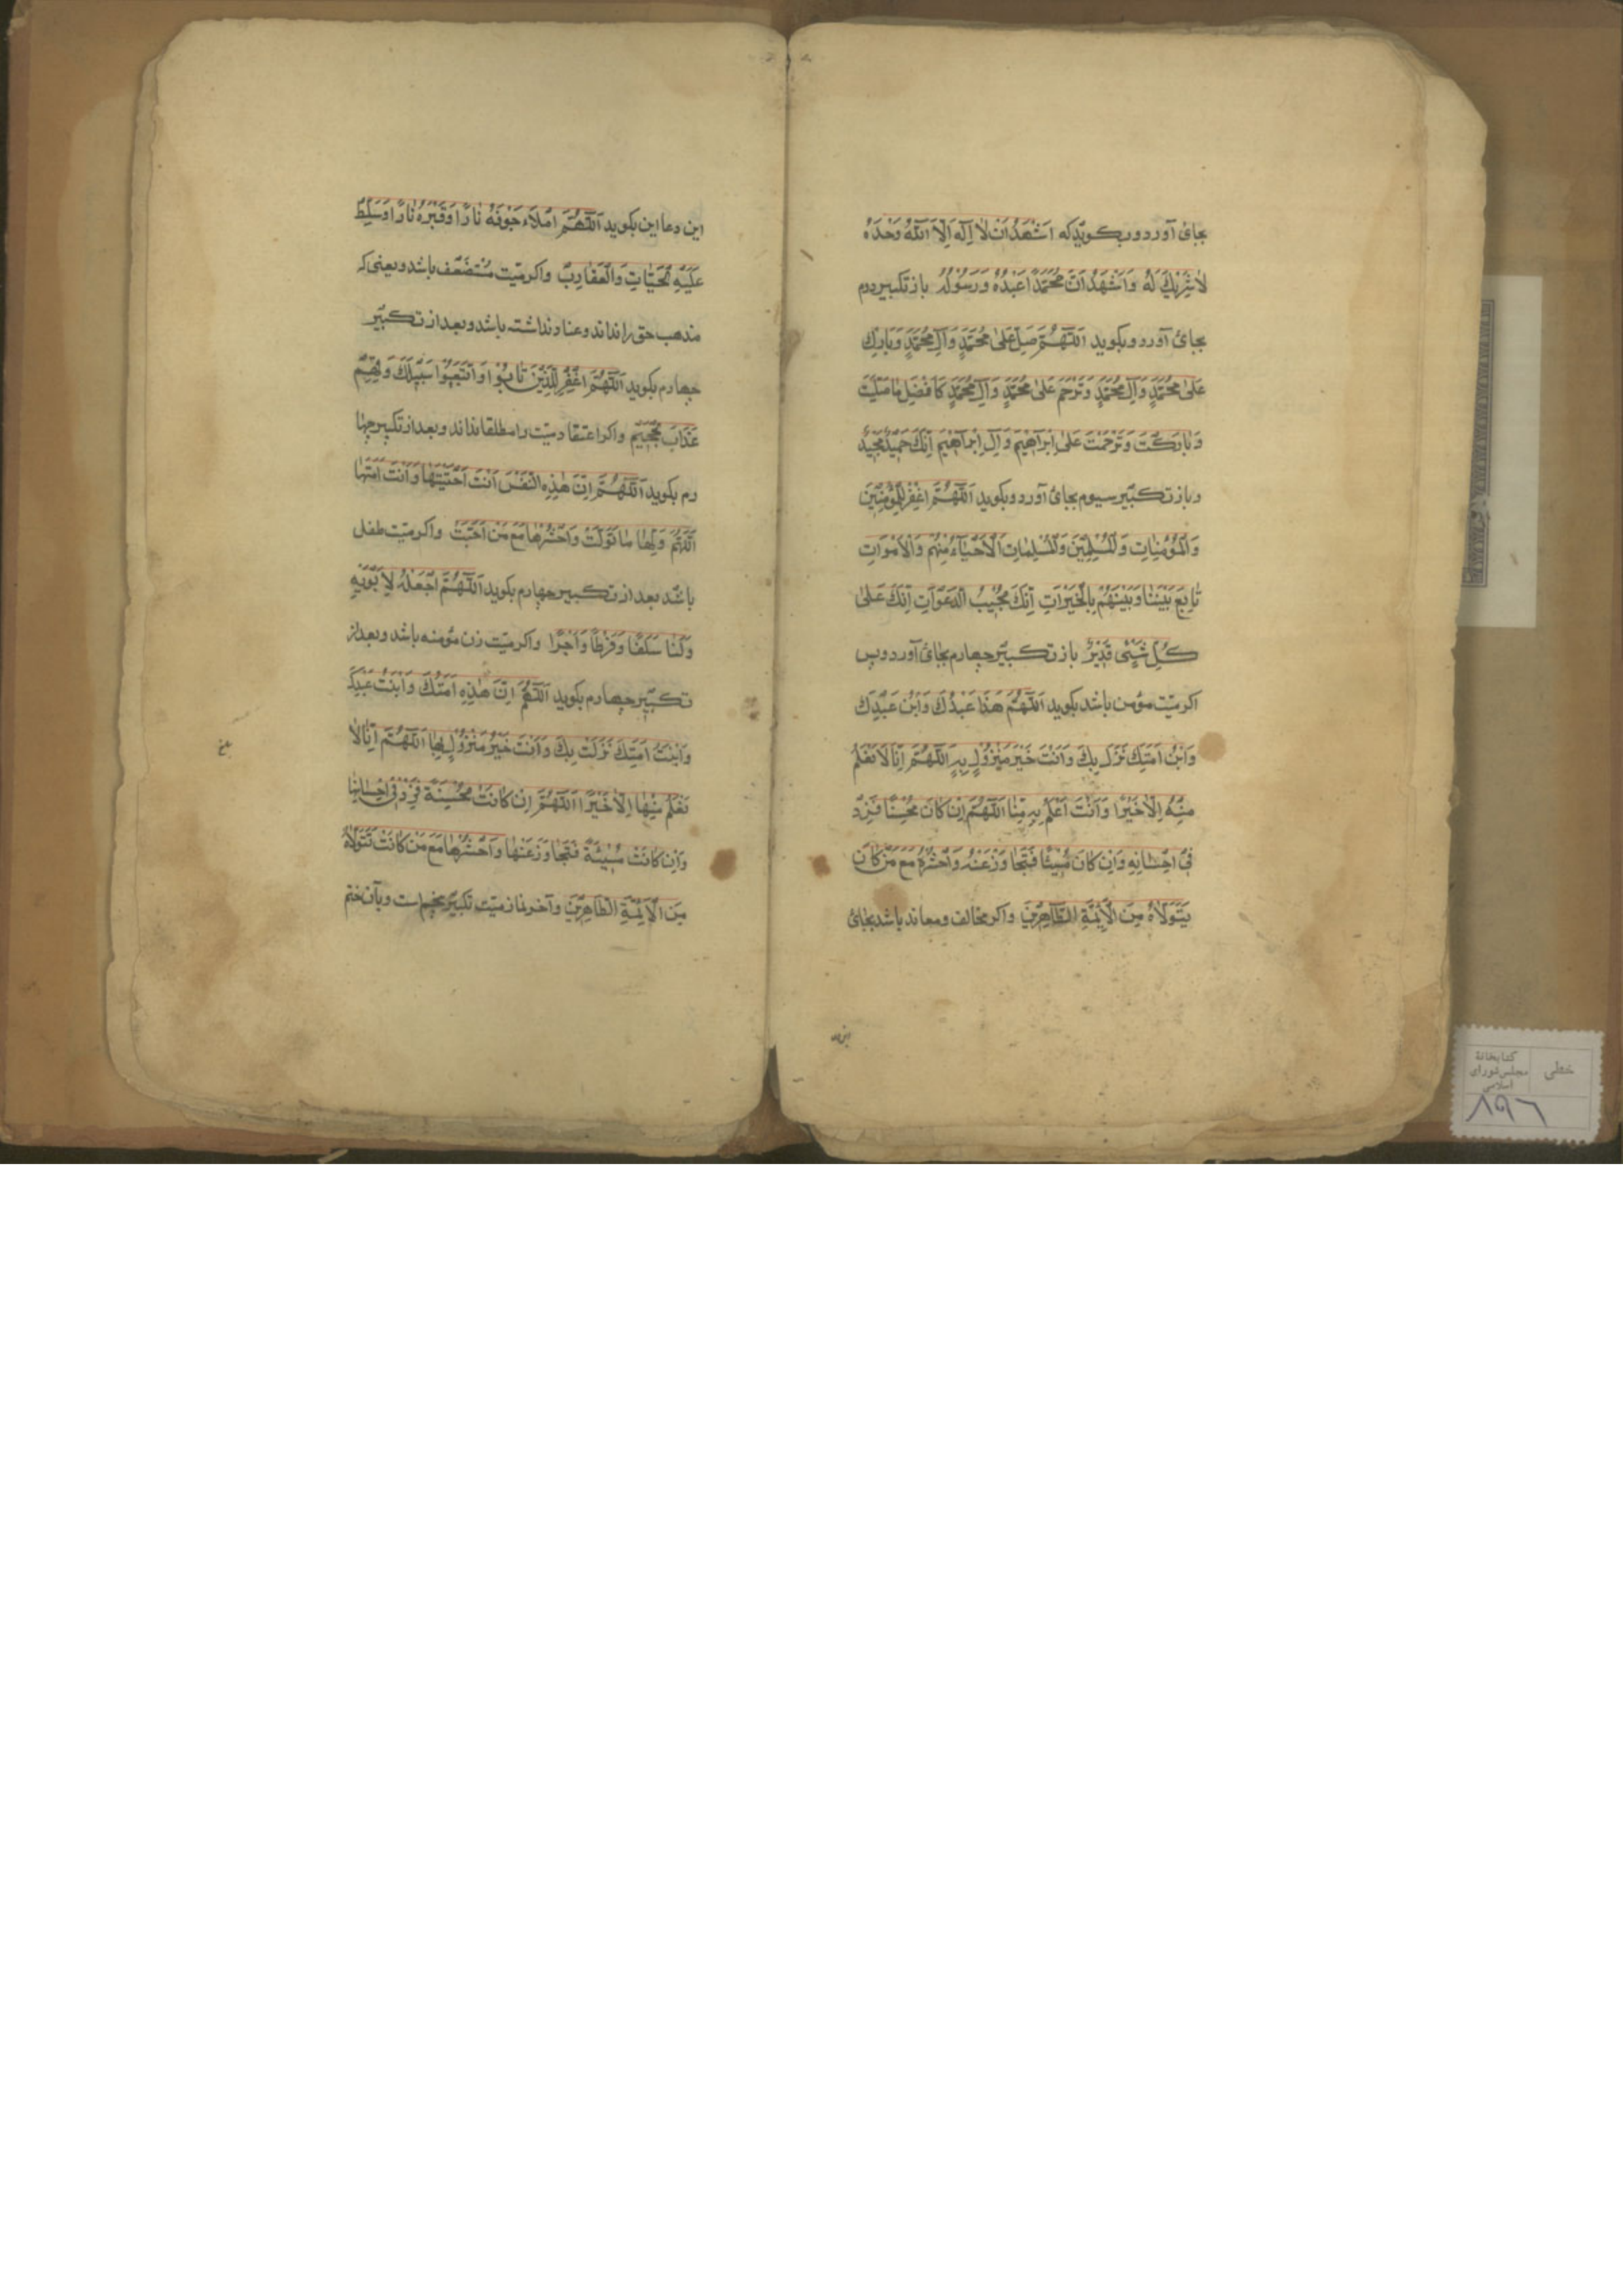 بجای آورد و بگوید که اَشْهَدُ اَنْ لا اِلٰهَ اِلَّا اللّٰهُ وَحْدَهُ
لا شَرِیْكَ لَهُ وَاَشْهَدُ اَنَّ مُحَمَّدًا عَبْدُهُ وَرَسُوْلُهُ باز تکبیر دوم
بجای آورد و بکوید اَللّٰهُمَّ صَلِّ عَلٰی مُحَمَّدٍ وَآلِ مُحَمَّدٍ وَبَارِكْ
عَلٰی مُحَمَّدٍ وَآلِ مُحَمَّدٍ وَتَرَحَّمْ عَلٰی مُحَمَّدٍ وَآلِ مُحَمَّدٍ کَاَفْضَلِ مَا صَلَّیْتَ
وَبَارَکْتَ وَتَرَحَّمْتَ عَلٰی اِبْرَاهِیْمَ وَآلِ اِبْرَاهِیْمَ اِنَّكَ حَمِیْدٌ مَجِیْدٌ
و باز تکبیر سیوم بجای آورد و بکوید اَللّٰهُمَّ اغْفِرْ لِلْمُؤْمِنِیْنَ
وَالْمُؤْمِنَاتِ وَالْمُسْلِمِیْنَ وَالْمُسْلِمَاتِ الْاَحْیَآءِ مِنْهُمْ وَالْاَمْوَاتِ
تَابِعْ بَیْنَنَا وَبَیْنَهُمْ بِالْخَیْرَاتِ اِنَّكَ مُجِیْبُ الدَّعَوَاتِ اِنَّكَ عَلٰی
کُلِّ شَیْئٍ قَدِیْرٌ باز تکبیر چهارم بجای آورد و پس
اکر میّت مؤمن باشد بکوید اَللّٰهُمَّ هٰذَا عَبْدُكَ وَابْنُ عَبْدِكَ
وَابْنُ اَمَتِكَ نَزَلَ بِكَ وَاَنْتَ خَیْرُ مَنْزُوْلٍ بِهِ اَللّٰهُمَّ اِنَّا لا نَعْلَمُ
مِنْهُ اِلَّا خَیْرًا وَاَنْتَ اَعْلَمُ بِهِ مِنَّا اَللّٰهُمَّ اِنْ کَانَ مُحْسِنًا فَزِدْ
فِیْ اِحْسَانِهِ وَاِنْ کَانَ مُسِیْئًا فَتَجَاوَزْ عَنْهُ وَاحْشُرْهُ مَعَ مَنْ کَانَ
یَتَوَلَّاهُ مِنَ الْاَئِمَّةِ الطَّاهِرِیْنَ واکر مخالف و معاند باشد بجای
این دعا
این دعا این بکوید اَللّٰهُمَّ امْلَاْءْ جَوْفَهُ نَارًا وَقَبْرَهُ نَارًا وَسَلِّطْ
عَلَیْهِ الْحَیَّاتِ وَالْعَقَارِبَ واکر میّت مُسْتَضْعَف باشد و یعنی که
مذهب حق را نداند و عناد نداشته باشد و بعد از تکبیر
چهارم بکوید اَللّٰهُمَّ اغْفِرْ لِلَّذِیْنَ تَابُوْا وَاتَّبَعُوْا سَبِیْلَكَ وَقِهِمْ
عَذَابَ الْجَحِیْمِ واکر اعتقاد میّت را مطلقا نداند و بعد از تکبیر چها
رم بکوید اَللّٰهُمَّ اِنَّ هٰذِهِ النَّفْسَ اَنْتَ اَحْیَیْتَهَا وَاَنْتَ اَمَتَّهَا
اَللّٰهُمَّ وَلِّهَا مَا تَوَلَّتْ وَاحْشُرْهَا مَعَ مَنْ اَحَبَّتْ واکر میّت طفل
باشد بعد از تکبیر چهارم بکوید اَللّٰهُمَّ اجْعَلْهُ لِاَبَوَیْهِ
وَلَنَا سَلَفًا وَفَرَطًا وَاَجْرًا واکر میّت زن مؤمنه باشد و بعد از
تکبیر چهارم بکوید اَللّٰهُمَّ اِنَّ هٰذِهِ اَمَتُكَ وَابْنَتُ عَبْدِكَ
وَابْنَتُ اَمَتِكَ نَزَلَتْ بِكَ وَاَنْتَ خَیْرُ مَنْزُوْلٍ بِهَا اَللّٰهُمَّ اِنَّا لا
نَعْلَمُ مِنْهَا اِلَّا خَیْرًا اَللّٰهُمَّ اِنْ کَانَتْ مُحْسِنَةً فَزِدْ فِیْ اِحْسَانِهَا
وَاِنْ کَانَتْ مُسِیْئَةً فَتَجَاوَزْ عَنْهَا وَاحْشُرْهَا مَعَ مَنْ کَانَتْ تَتَوَلَّاهُ
مِنَ الْاَئِمَّةِ الطَّاهِرِیْنَ وآخر نماز میّت تکبیر پنجم است و بآن ختم
بلغ
خطی
کتابخانهٔ
مجلس شورای
اسلامی
۸۹۶